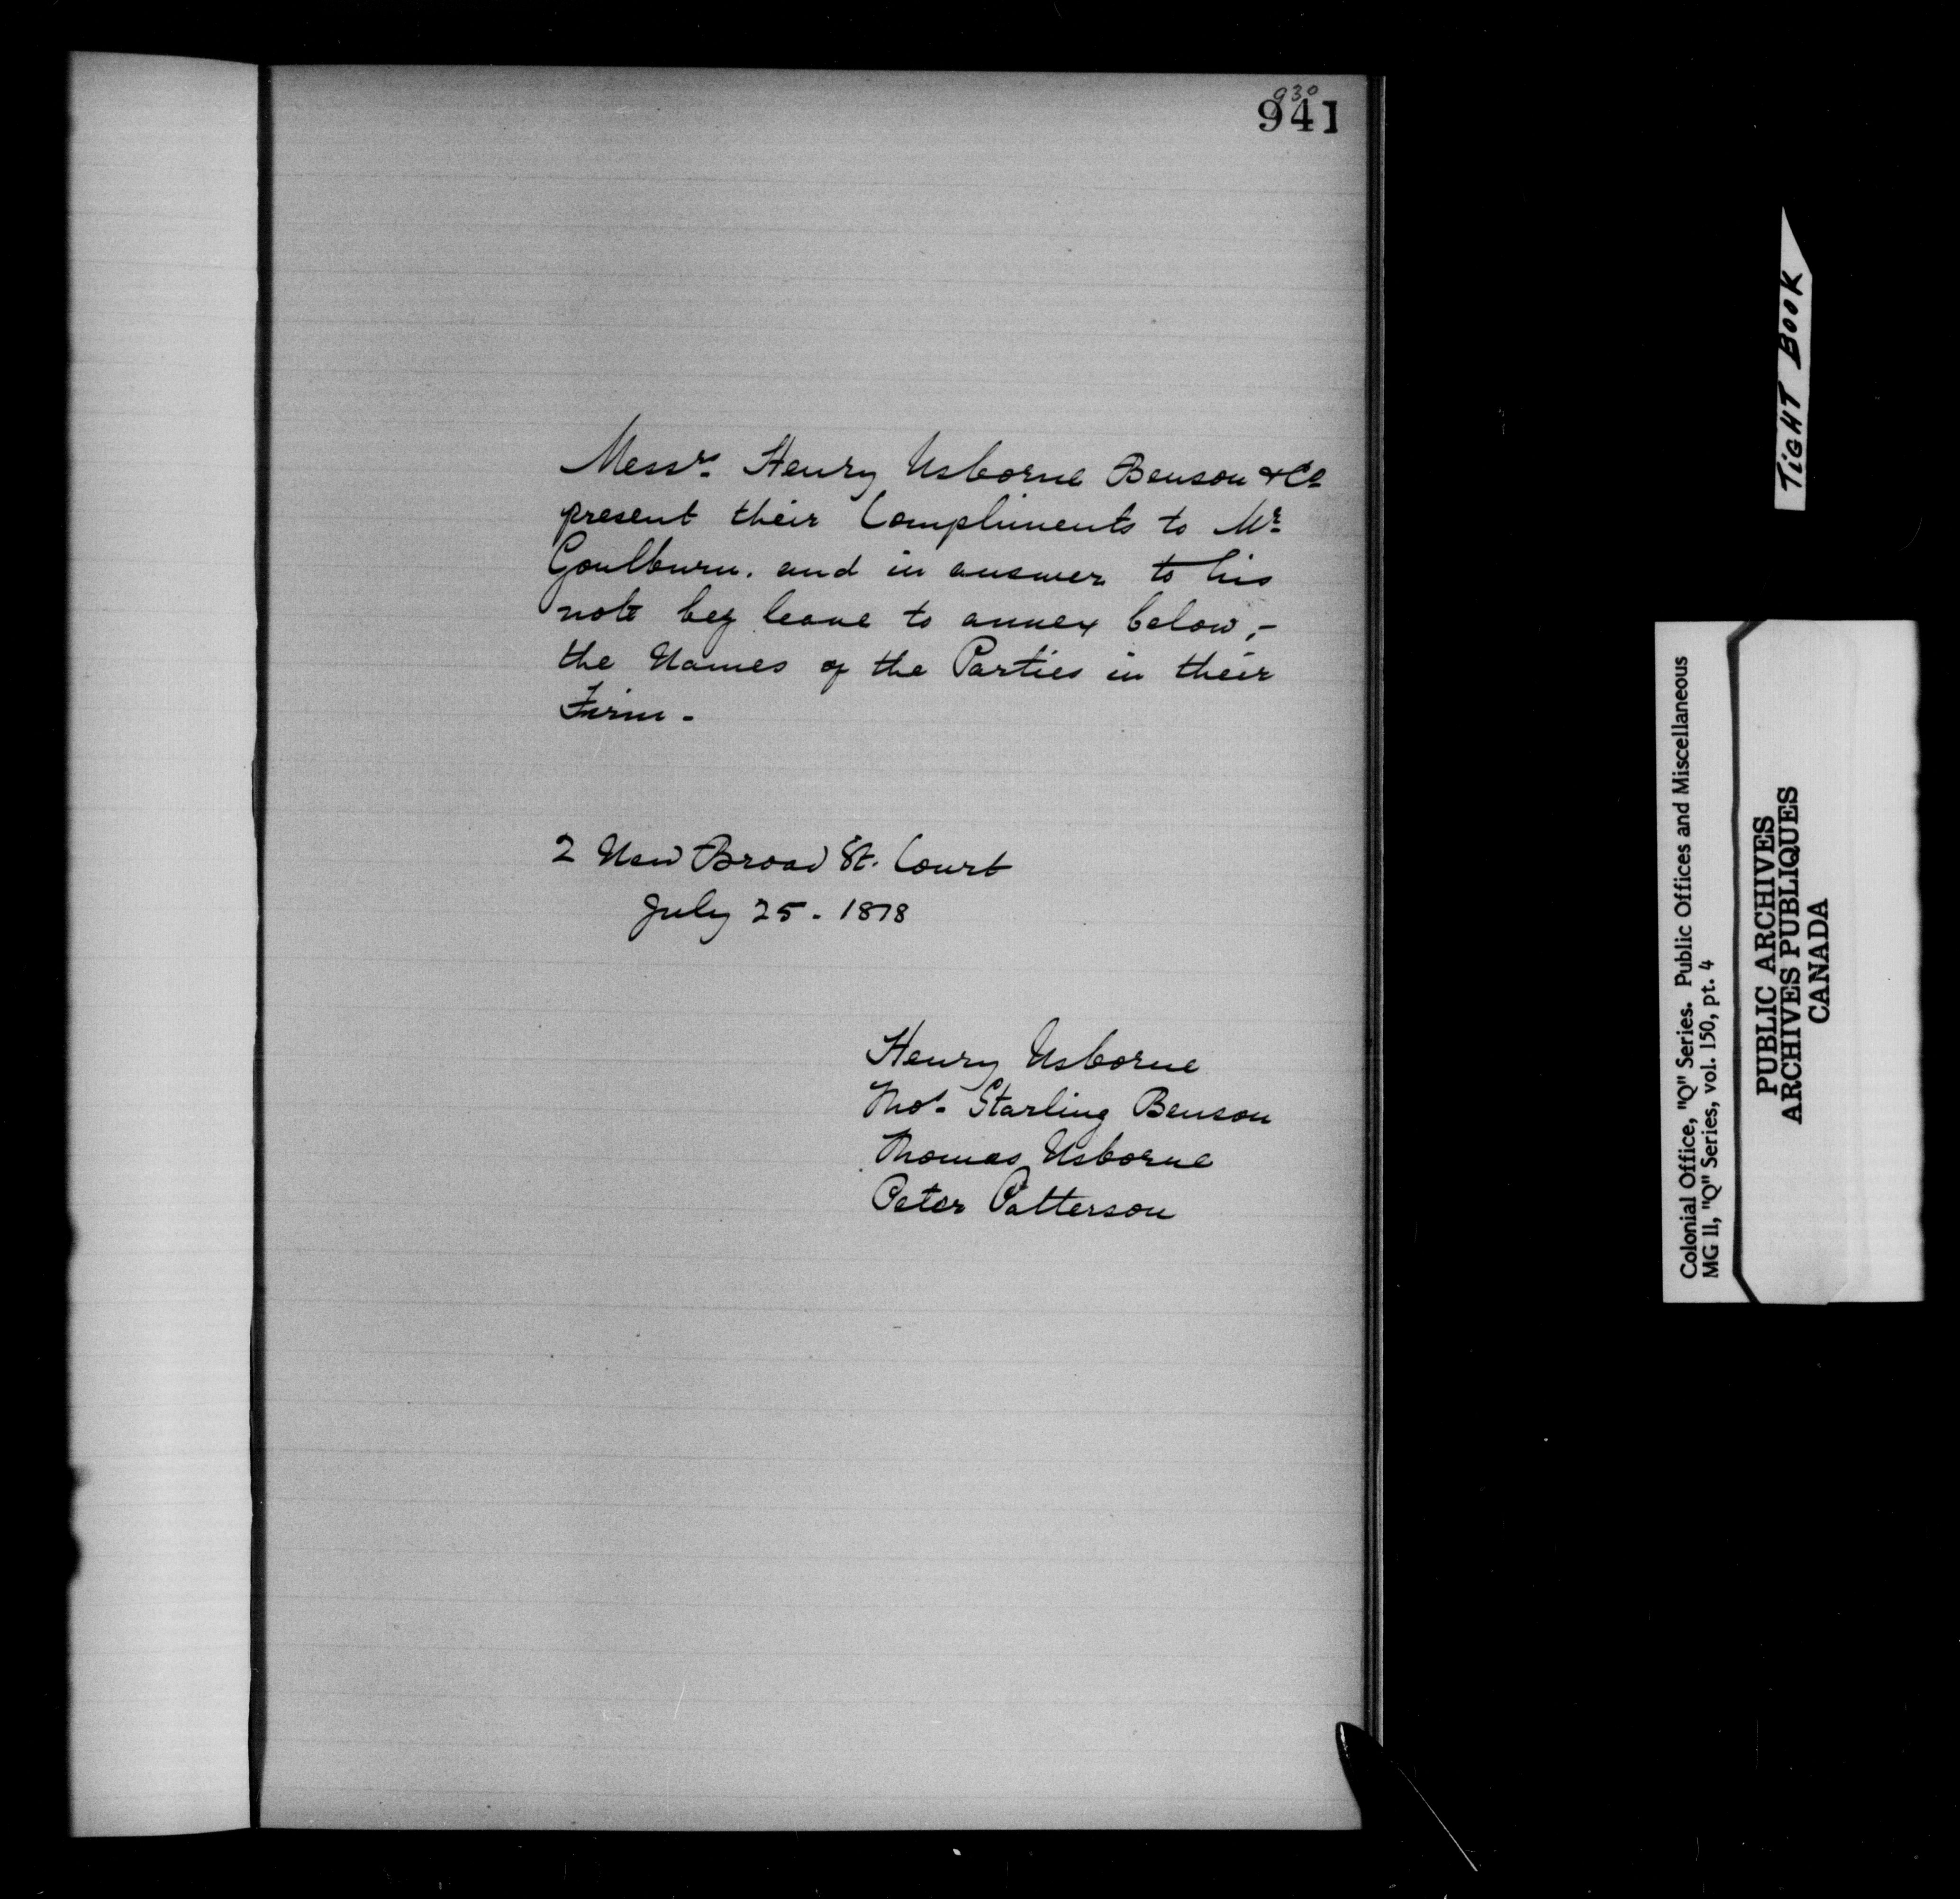 930
941
Messrs. Henry Usborne Benson & Co
present their Compliments to Mr.
Goulburn. and in answer to his
note beg leave to annex below,-
the Names of the Parties in their
Firm -
2 New Broad St. Court
July 25 - 1818
Henry Usborne
Thos. Starling Benson
Thomas Usborne
Peter Patterson
TIGHT BOOK
Colonial Office, "Q" Series. Public Offices and Miscellaneous
MG 11, "Q" Series, vol. 150, pt. 4
PUBLIC ARCHIVES
ARCHIVES PUBLIQUES
CANADA